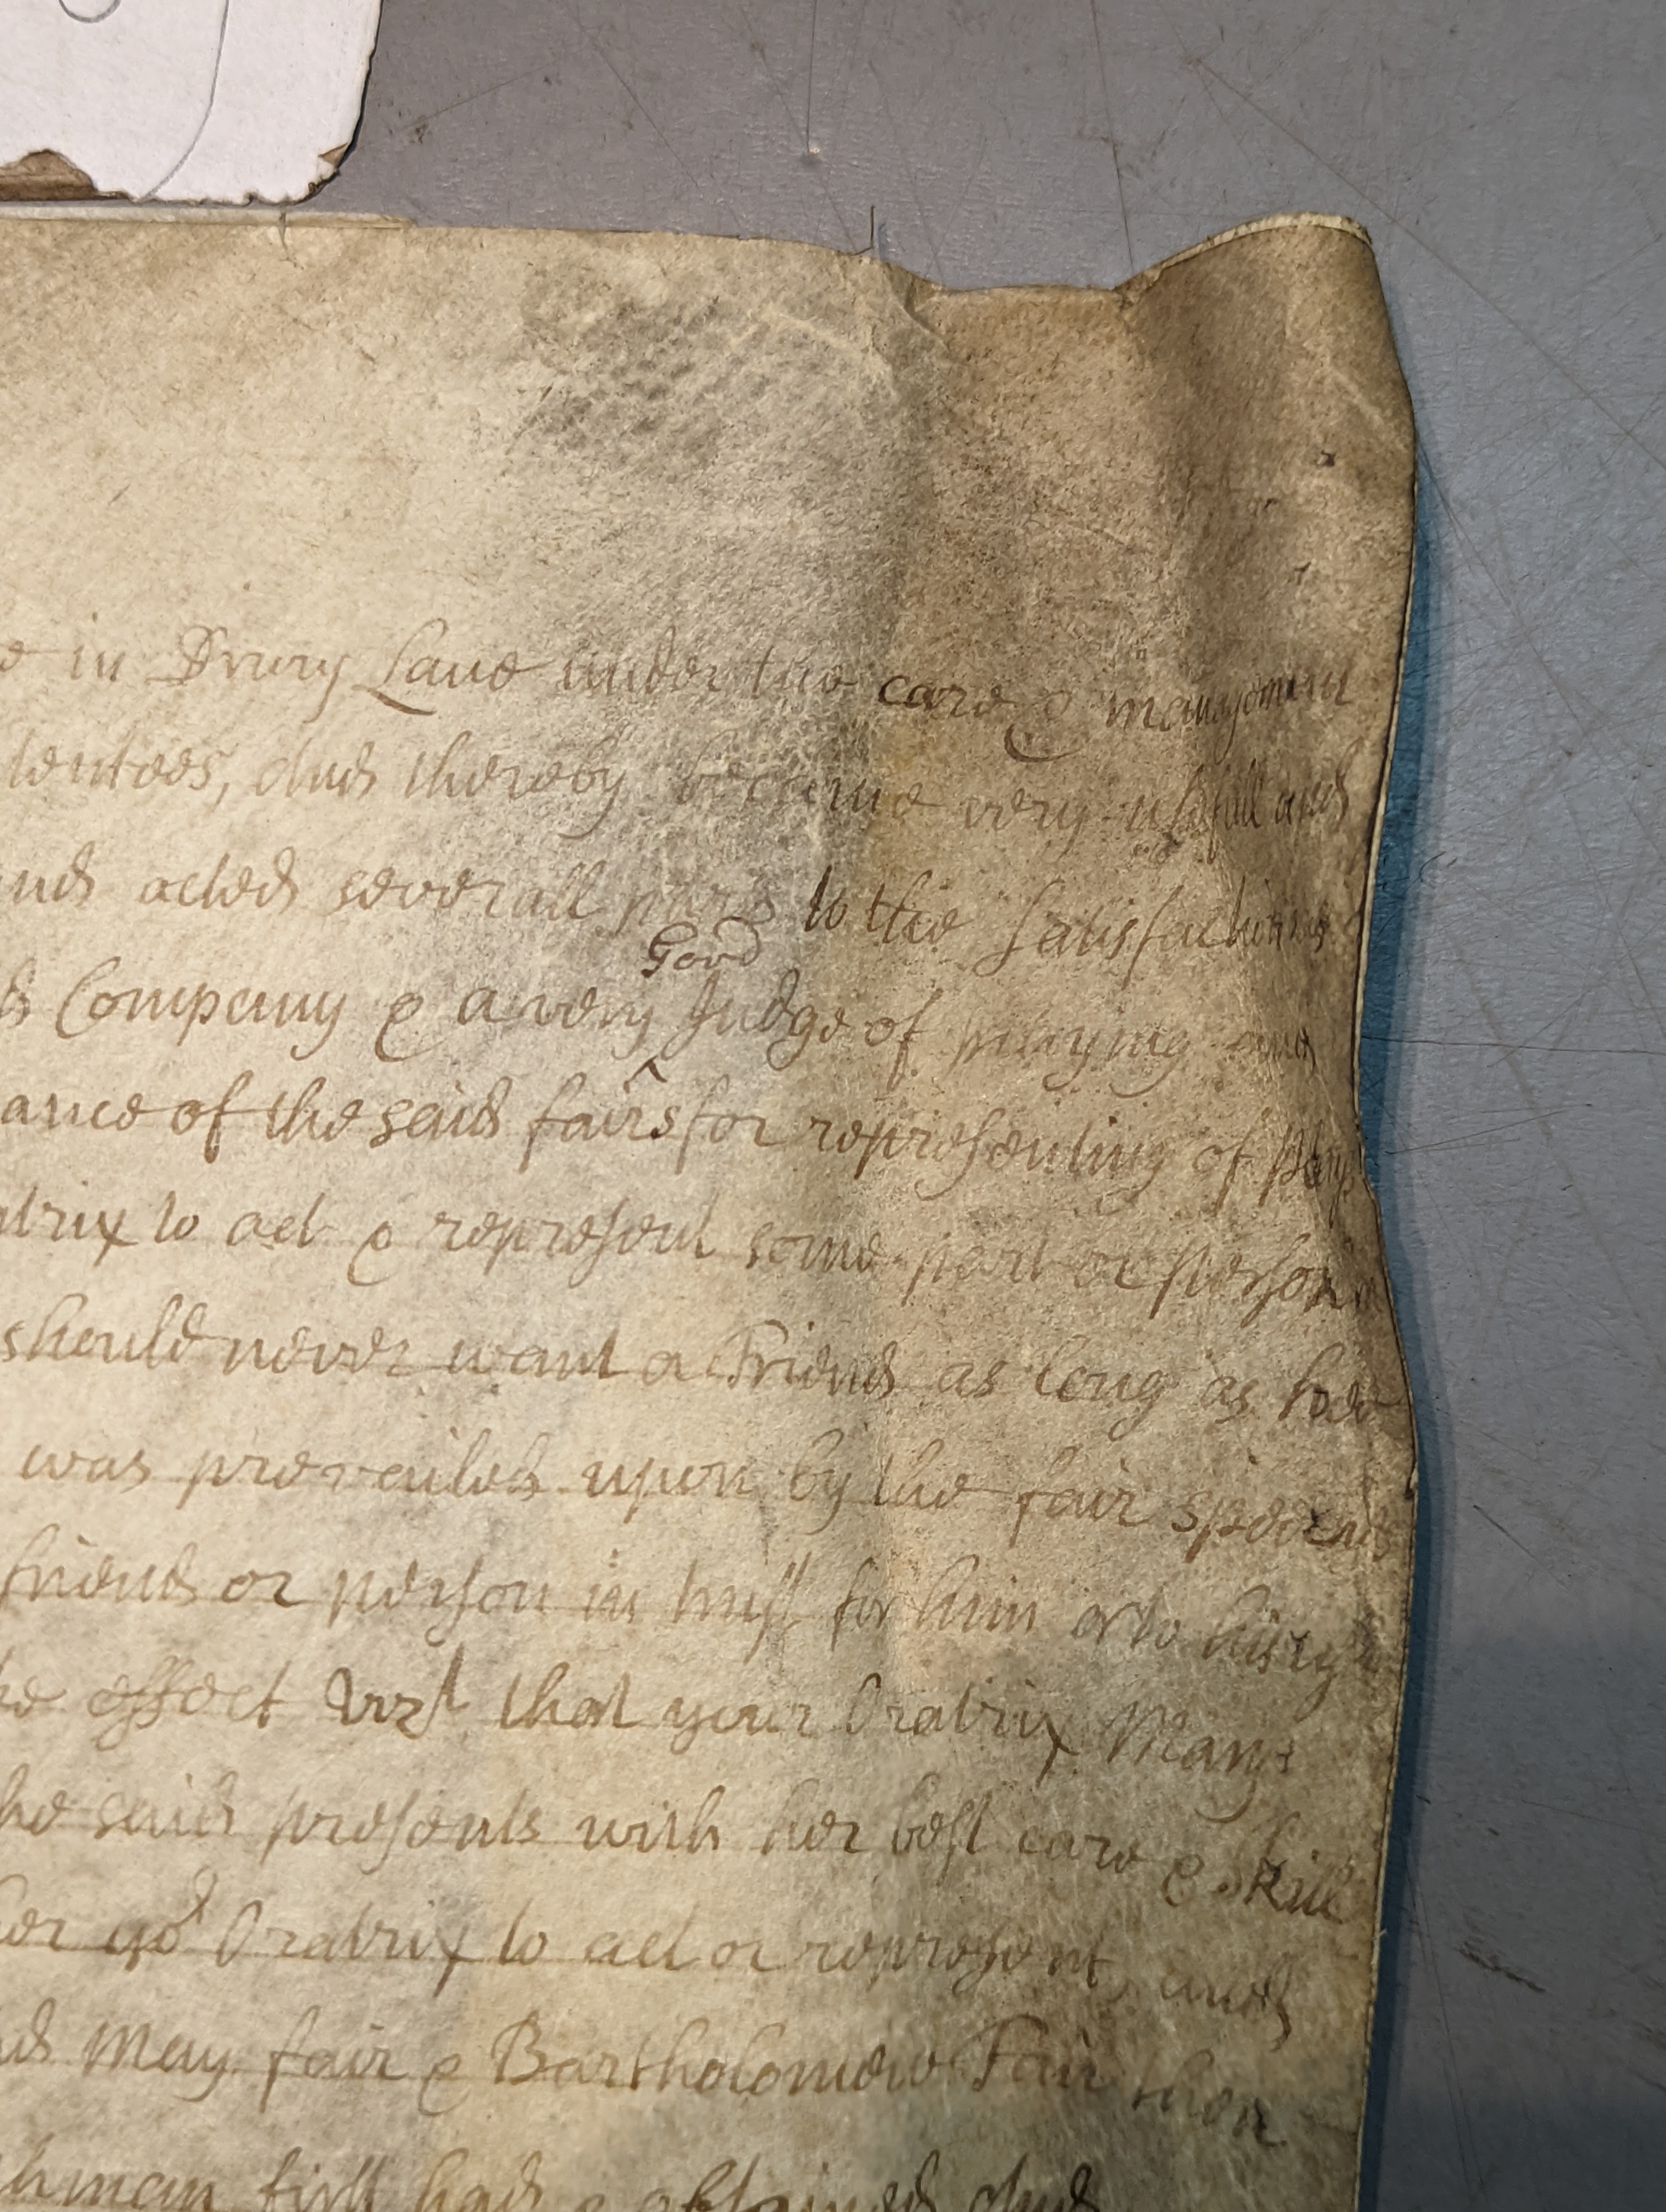 e in Drury Lane under the care & managemt
tentees, And thereby became very usefull and
nd acted severall parts to the Satisfaction
d Company & a very Judge of playing and
Good
^
ance of the said fairs for representing of Plays
atrix to act & represent some part or person
should never want a Friend as long as hee
was prevailed upon by the fair speeches
friend or person in trust for him or to his
he effect vizt that your Oratrix Mary
he said presents with her best care & skill
her yor Oratrix to act or represent, and
nd May fair & Bartholomew Fair then
hman first had & obtained And